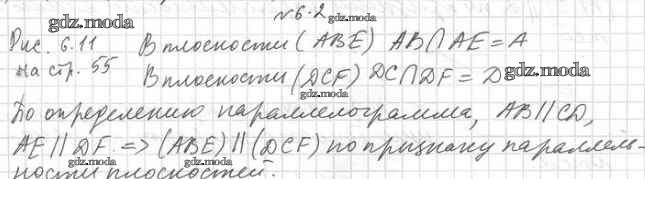 №6.2
gdz.moda
gdz.moda
Рис. 6.11 В плоскости (ABE) AB∩AE=A
на стр. 55 В плоскости (DCF) DC∩DF=D gdz.moda
gdz.moda
gdz.moda
По определению параллелограмма, AB||CD,
AE||DF. => (ABE)||(DCF) по признаку параллель-
gdz.moda gdz.moda gdz.moda
ности плоскостей.